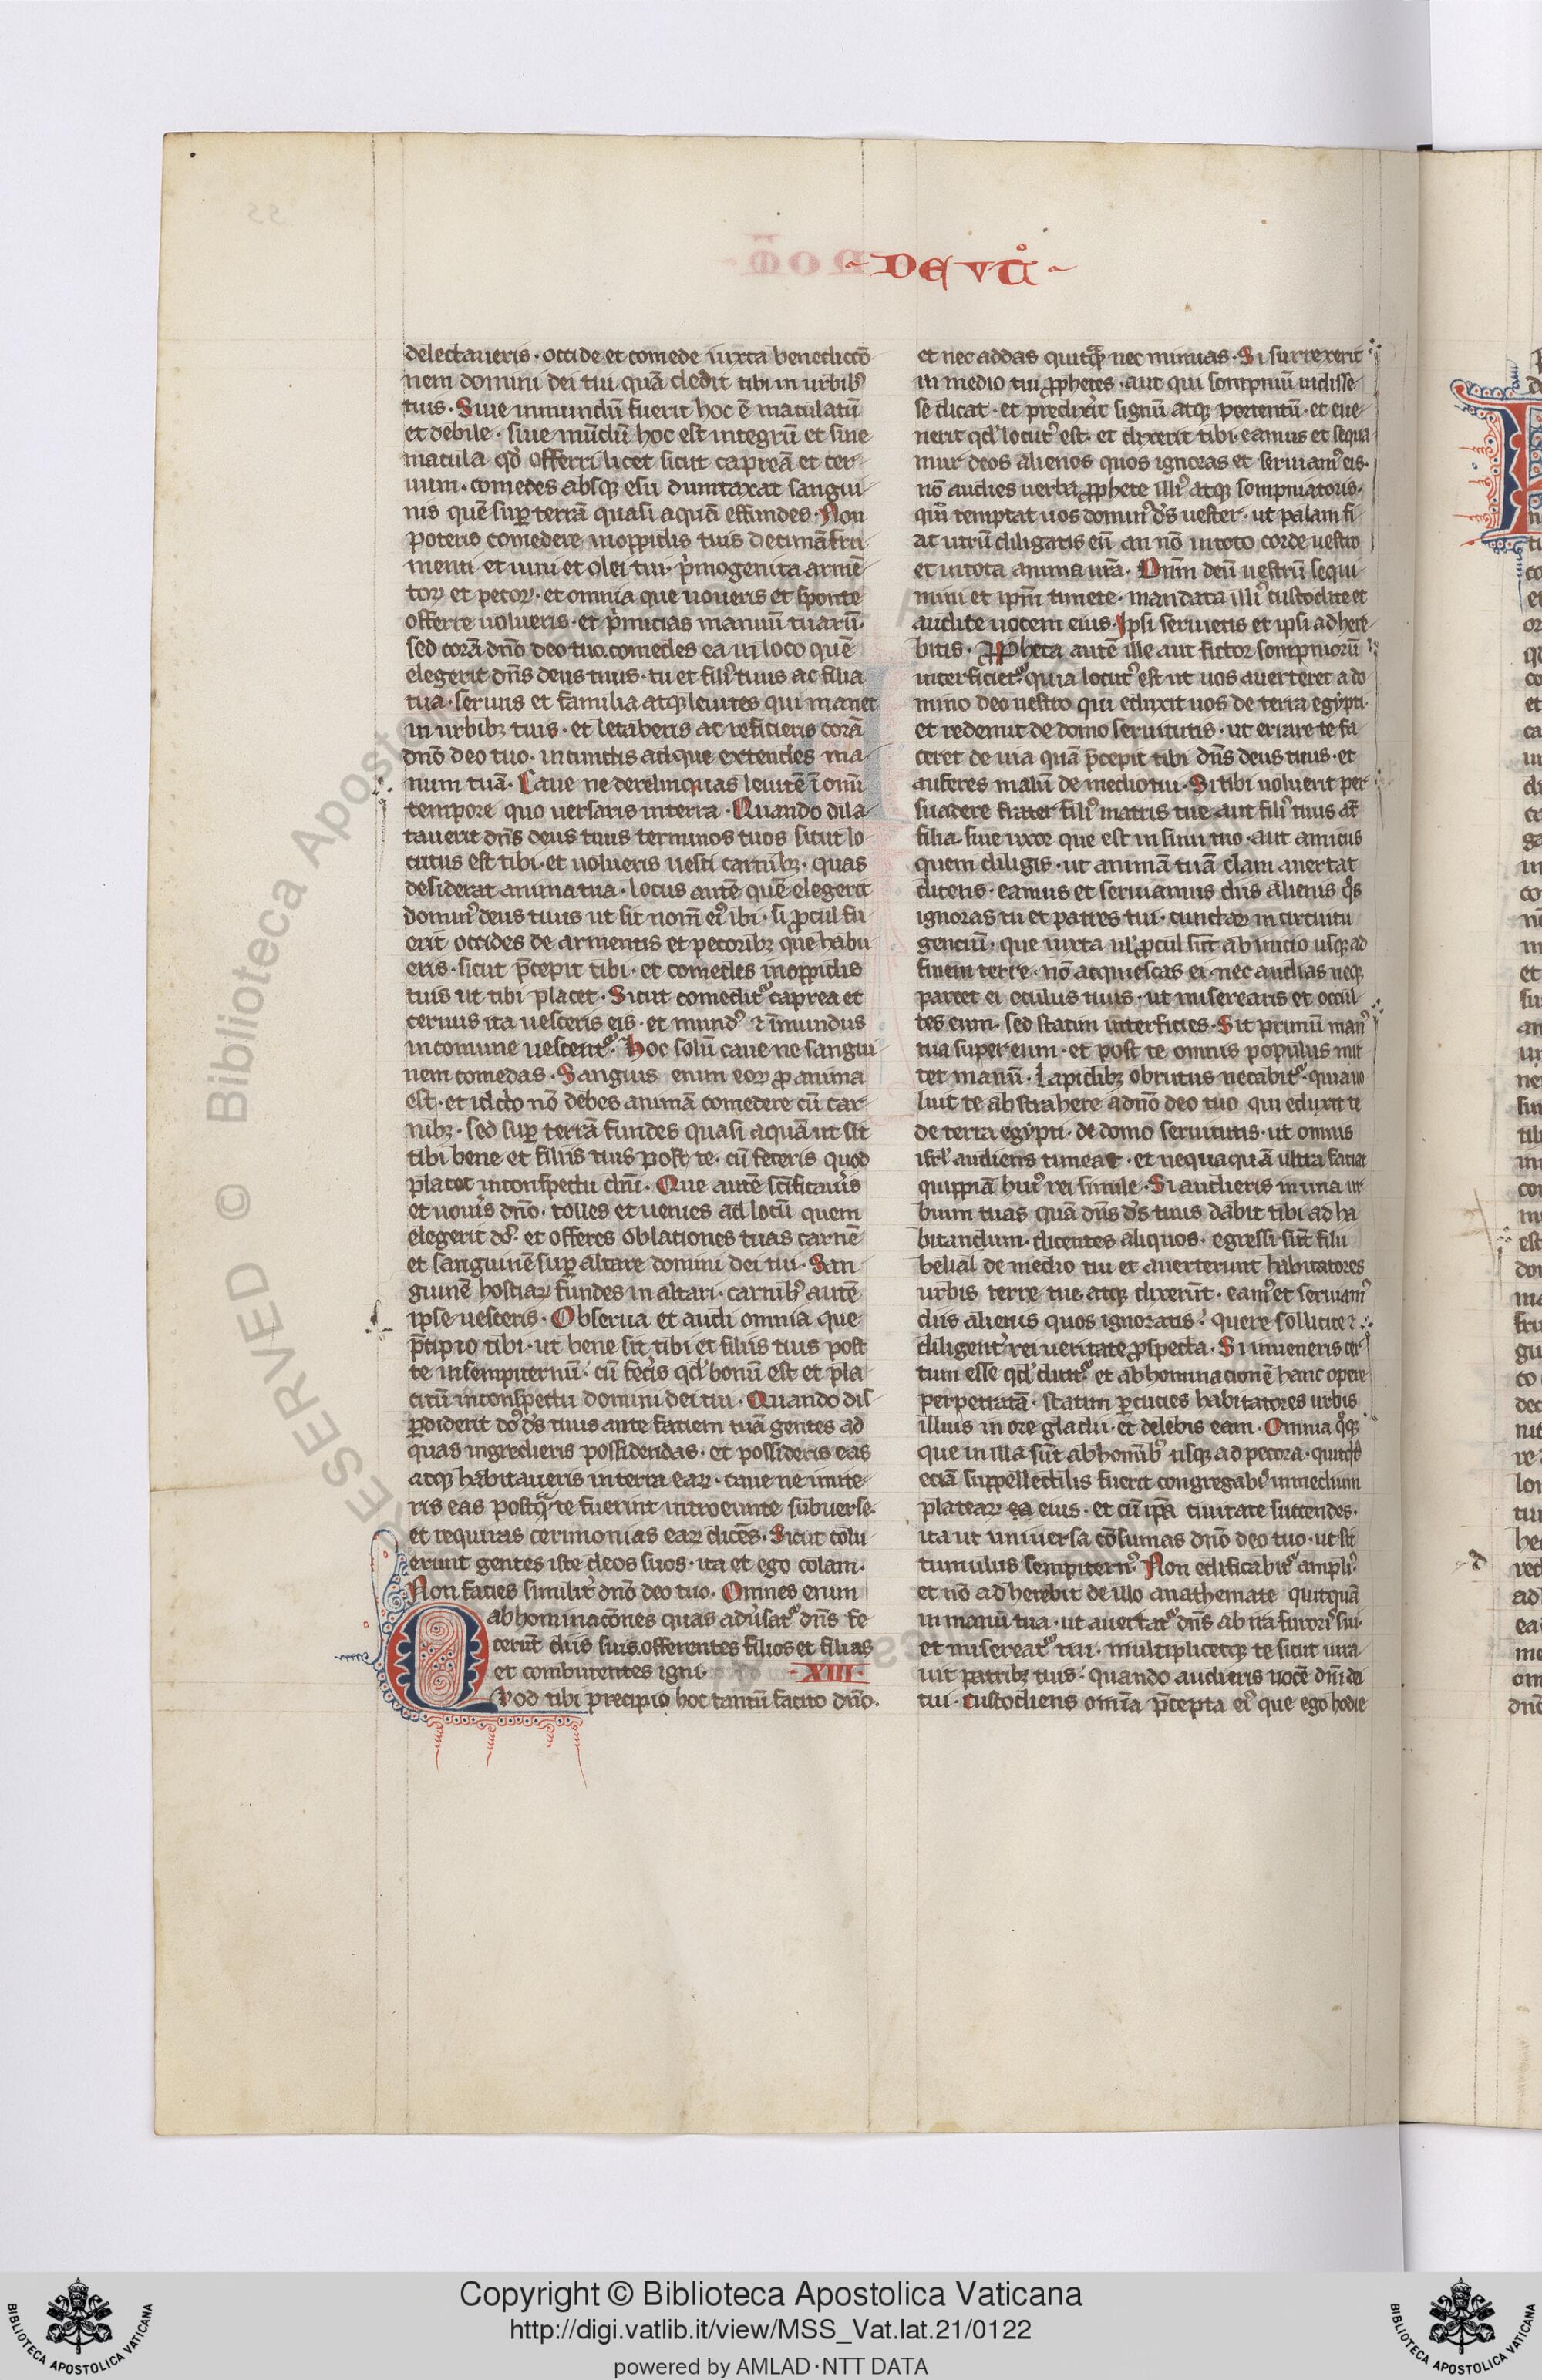 - DEUTᵒ -
delectaueris · occide et comede iuxta benedictō
nem domini dei tui quā dedit tibi in urbib᾽
tuis · Siue inmundū fuerit hoc ē maculatū
et debile · siue mūdū hoc est integrū et sine
macula qd̓ offerri licet sicut capreā et cer-
uum · comedes absqꝫ esu dumtaxat sangui-
nis quē suꝑ terrā quasi aquā effundes · Non
poteris comedere in oppidis tuis decimā fru-
menti et uini et olei tui · p̓mogenita armē-
toꝝ et pecoꝝ · et omnia que uoueris et sponte
offerre uolueris · et p̓mitias manuū tuarū ·
sed corā dn̄o deo tuo comedes ea in loco quē
elegerit dn̄s deus tuus · tu et fili᾽ tuus ac filia
tua · seruus et familia atqꝫ leuites qui manet
in urbibꝫ tuis · et letaberis ac reficieris corā
dn̄o deo tuo · in cunctis ad que extendes ma-
num tuā · Caue ne derelinquas leuitē ī omī
tempore quo uersaris in terra · Quando dila-
tauerit dn̄s deus tuus terminos tuos sicut lo
cutus est tibi · et uolueris uesci carnibꝫ · quas
desiderat anima tua · locus autē quē elegerit
domin᾽ deus tuus ut sit nom̄ ei᾽ ibi · si ꝓcul fu-
erit occides de armentis et pecoribꝫ que habu
eris · sicut p̄cepit tibi · et comedes in oppidis
tuis ut tibi placet · Sicut comedit᷑ caprea et
ceruus ita uesceris eis · et mund᾽ ⁊ īmundus
in comune uescent᷑ · Hoc solū caue ne sangui
nem comedas · Sanguis enim eoꝝ ꝓ anima
est · et idc̄o nō debes animā comedere cū car-
nibꝫ · sed suꝑ terrā fundes quasi aquā ut sit
tibi bene et filiis tuis post te · cū feceris quod
placet in conspectu dn̄i · Que autē sc̄ificaūis
et uoūis dn̄o · tolles et uenies ad locū quem
elegerit dō᾽ · et offeres oblationes tuas carnē
et sanguinē suꝑ altare domini dei tui · San
guinē hostiaꝝ fundes in altari · carnib᾽ autē
ipse uesceris · Obserua et audi omnia que
p̄cipio tibi · ut bene sit tibi et filiis tuis post
te in sempiternū · cū fec̓is qd̓ bonū est et pla
citū in conspectu domini dei tui · Quando dis
ꝑdiderit dō᾽ d̄s tuus ante faciem tuā gentes ad
quas ingredieris possidendas · et possideris eas
atqꝫ habitaueris in terra eaꝝ · caue ne imite-
ris eas postqͣ̄ te fuerint introeunte subuerse ·
et requiras cerimonias eaꝝ dicēs · Sicut colu
erunt gentes iste deos suos · ita et ego colam ·
Non facies similit᾽ dn̄o deo tuo · Omnes enim
abhominacōnes quas adūsat᷑ dn̄s fe
cerūt diis suis offerentes filios et filias
et comburentes igni · XIII ·
Quod tibi precipio hoc tantū facito dn̄o ·
et nec addas quicqͣ̄ nec minuas · Si surrexerit
in medio tui ꝓphetes · aut qui sompniū uidisse
se dicat · et predixerit signū atqꝫ portentū · et eue-
nerit qd̓ locut᾽ est · et dixerit tibi · eamus et sequa
mur deos alienos quos ignoras et seruiam᾽ eis ·
nō audies uerba ꝓphete illi᾽ atqꝫ sompniatoris ·
qm̄ temptat uos domin᾽ d̄s uester · ut palam fi-
at utrū diligatis eū an nō in toto corde uestro
et in tota anima ur̄a · Dn̄m deū uestrū sequi-
mini et ip̄m timete · mandata illi᾽ custodite et
audite uocem eius · Ipsi seruietis et ipsi adhere-
bitis · Ꝓpheta autē ille aut fictor sompniorū
interficiet᷑ quia locut᾽ est ut uos auerteret a do
mino deo uestro qui eduxit uos de terra egypti ·
et redemit de domo seruitutis · ut errare te fa
ceret de uia quā p̄cepit tibi dn̄s deus tuus · et
auferes malū de medio tui · Si tibi uoluerit per-
suadere frater fili᾽ matris tue aut fili᾽ tuus aū
filia · siue uxor que est in sinu tuo · aut amicus
quem diligis · ut animā tuā clam auertat
dicens · eamus et seruiamus diis alienis qͦs
ignoras tu et patres tui · cunctaꝝ in circuitu
gentiū · que iuxta ul̓ ꝓcul sūt ab initio usqꝫ ad
finem terre · nō acquiescas ei nec audias neqꝫ
parcet ei oculus tuus · ut miserearis et occul
tes eum · sed statim interficies · Sit primū man᾽
tua super eum · et post te omnis populus mit
tet manū · Lapidibꝫ obrutus necabit᷑ · quia uo
luit te abstrahere a dn̄o deo tuo qui eduxit te
de terra egypti · de domo seruitutis · ut omnis
isrl̓ audiens timeat · et nequaquā ultra faciat
quippiā hui᾽ rei simile · Si audieris in una ur
bium tuas quā dn̄s d̄s tuus dabit tibi ad ha
bitandum · dicentes aliquos · egressi sūt filii
belial de medio tui et auerterunt habitatores
urbis terre tue atqꝫ dixerūt · eam᾽ et seruiam᾽
diis alienis quos ignoratis · quere sollicite ⁊
diligent᾽ rei ueritate ꝓspecta · Si inueneris cer
tum esse qd̓ dicit᷑ et abhominacionē hanc opere
perpetratā · statim ꝑcuties habitatores urbis
illius in ore gladii · et delebis eam · Omnia qͦqꝫ
que in illa sūt ab homīb᾽ usqꝫ ad pecora · quicqͥd
eciā suppellectilis fuerit congregabis in medium
plateaꝝ ea eius · et cū ip̄a ciuitate succendes ·
ita ut uniuersa cōsumas dn̄o deo tuo · ut sit
tumulus sempitern᾽ Non edificabit᷑ ampli᾽
et nō adherebit de illo anathemate quicquā
in manu tua · ut auertat᷑ dn̄s ab ira furoris sui ·
et misereat᷑ tui · multiplicetqꝫ te sicut iura
uit patribꝫ tuis · quando audieris uocē dn̄i dei
tui · custodiens omīa p̄cepta ei᾽ que ego hodie
Copyright © Biblioteca Apostolica Vaticana
http://digi.vatlib.it/view/MSS_Vat.lat.21/0122
powered by AMLAD·NTT DATA
BIBLIOTECA APOSTOLICA VATICANA
BIBLIOTECA APOSTOLICA VATICANA